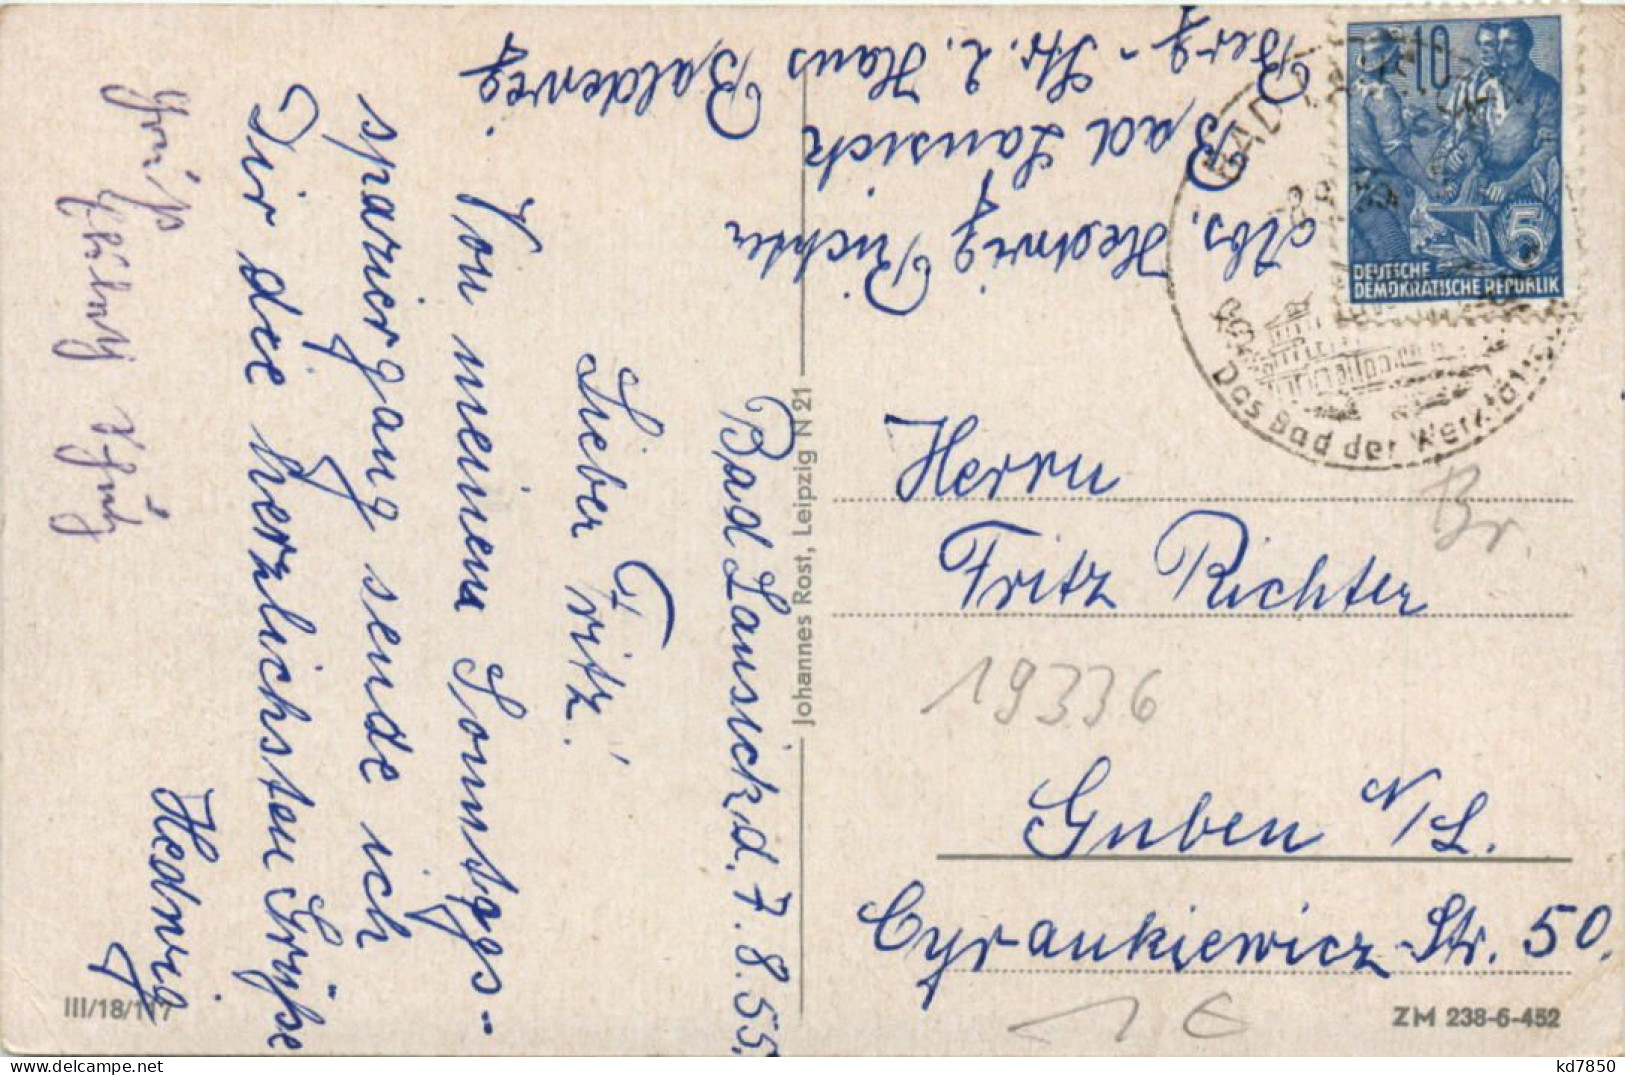 Bad Lausick, d. 7.8.55.
Lieber Fritz!
Von meinem Sonntags-
spaziergang sende ich
Dir die herzlichsten Grüße
Hedwig
Gruß
Abs. Hedwig Richter
Bad Lausick
Berg-Str. 2. Haus Baldeweg.
Johannes Rost, Leipzig N 21
III/18/117
10
5
DEUTSCHE
DEMOKRATISCHE REPUBLIK
BAD
Das Bad der
Herrn
Fritz Richter
Br.
19336
Guben N/L.
Cyrankiewicz-Str. 50.
1 €
ZM 238-6-452
kd7850